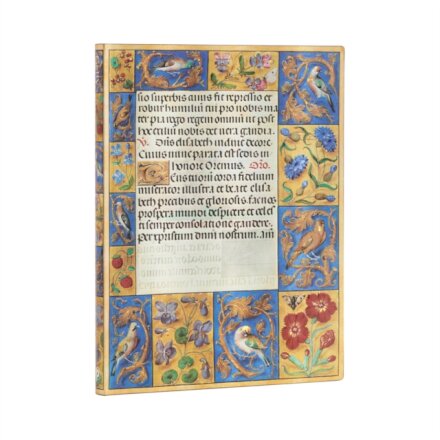 lio superbis cuius fit repressio et
robur humilium cui pro nobis ma
ter pia rego regem omnium ut post
hoc exilium nobis det vera gaudia.
V. Diua elisabeth indue decore
Cuius nunc parata est sedis in
honore Oremus. Oro.
corda fidelium
miserator illustra et beate elisa
beth precibus et gloriosis fac nos
prospera mundi despicere et celes
ti semper consolatione gaudere.
per xpistum dnm nostrum. am